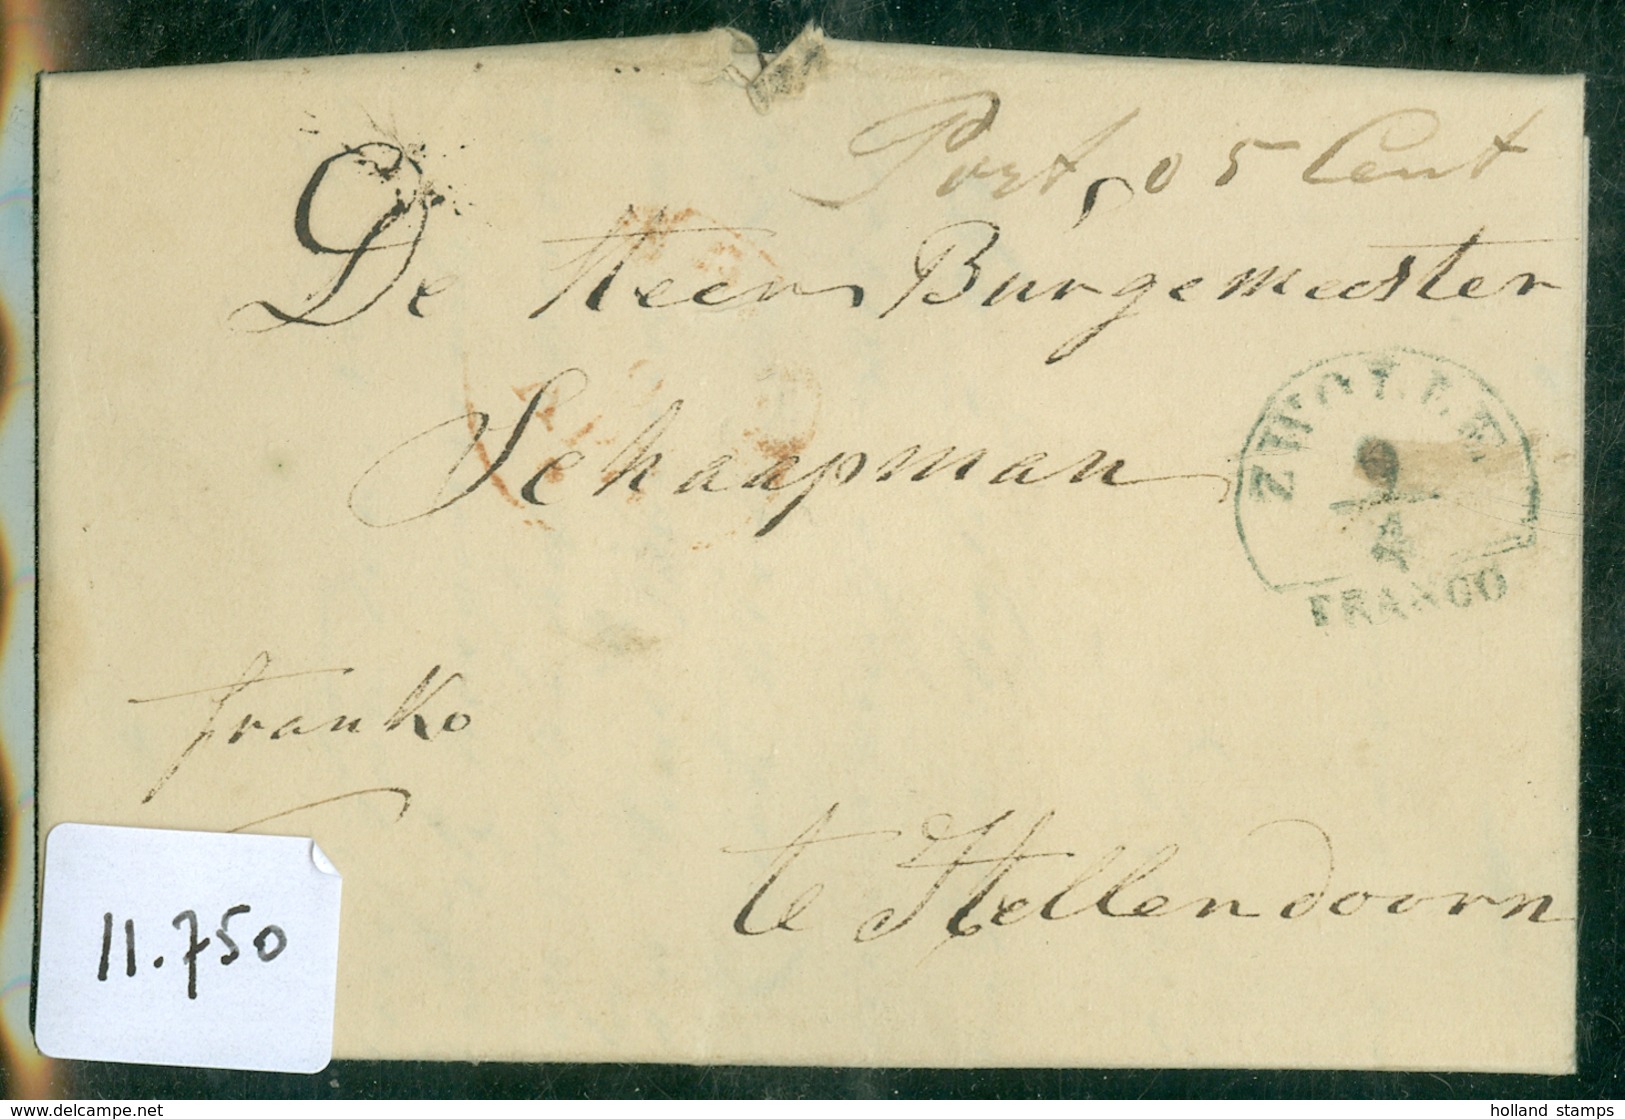 Port, 05 Cent
De Heer Burgemeester
Schaapman
ZWOLLE
9
4
FRANCO
franko
te Hellendoorn
11.750
© www.delcampe.net
holland stamps